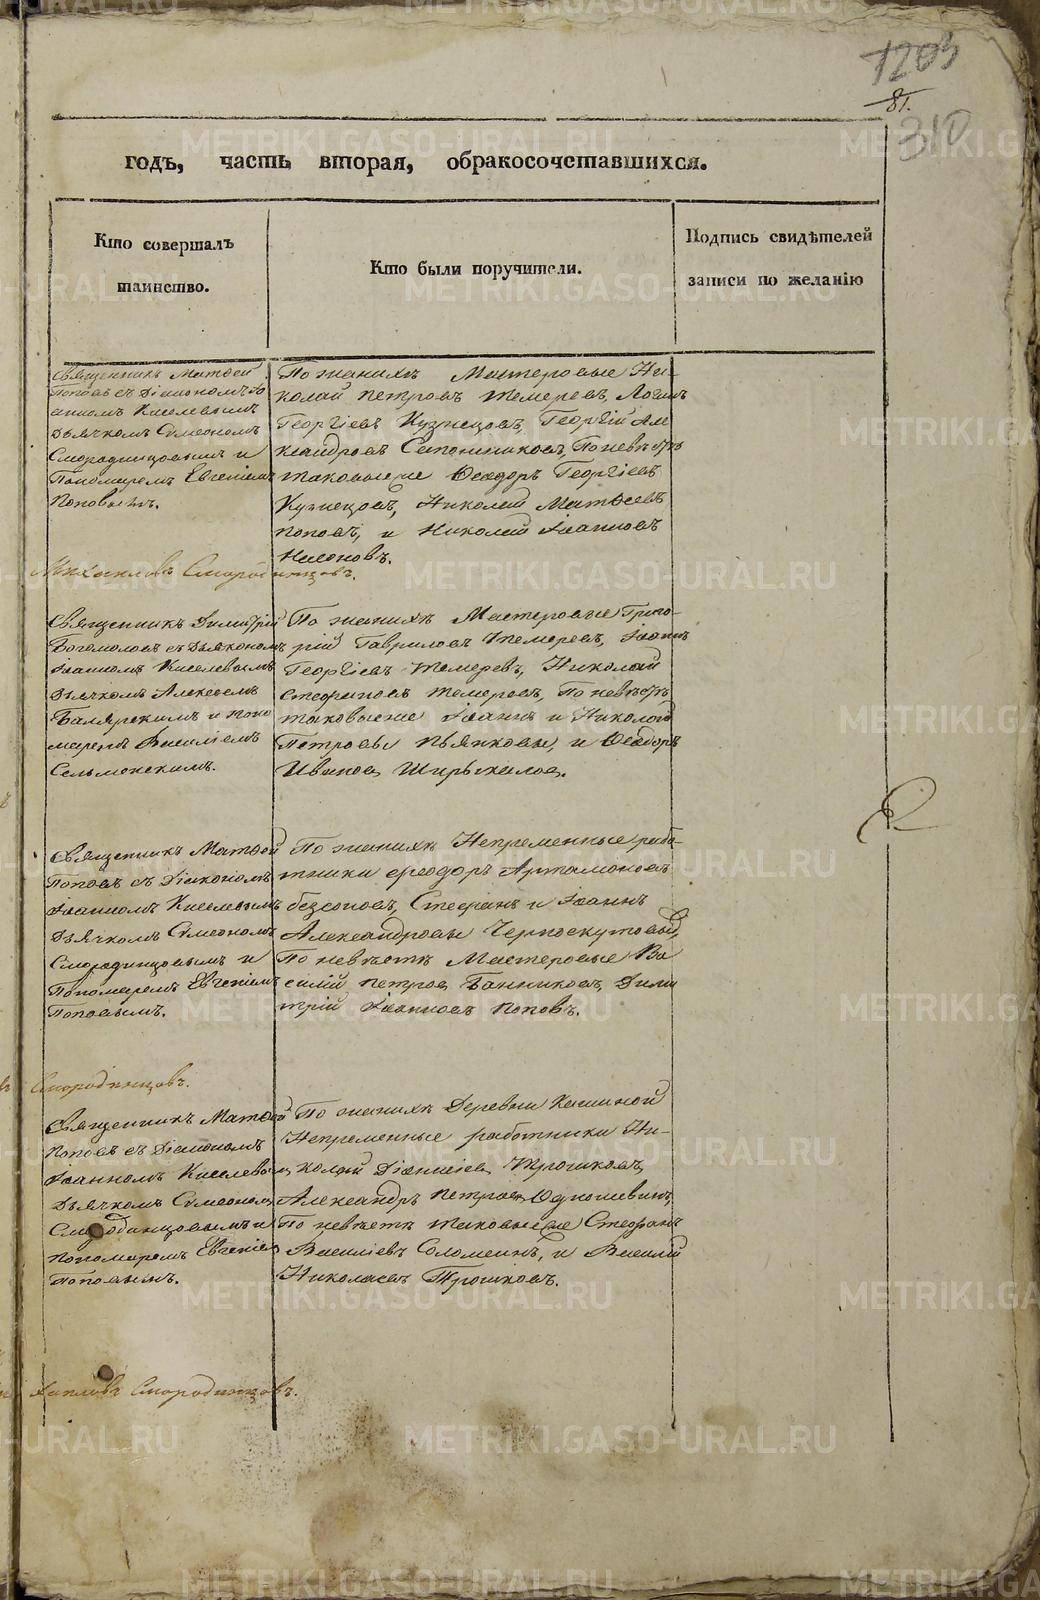 1203
81.
310
годъ, часть вторая, обракосочетавшихся.
Кто совершалъ
таинство.
Кто были поручители.
Подпись свидѣтелей
записи по желанію
Священникъ Матѳей
Поповъ съ Діакономъ Іо-
анномъ Киселевымъ
Дьячкомъ Сѵмеономъ
Смородинцовымъ и
Пономаремъ Евгеніемъ
Поповымъ.
По женихѣ Мастеровые Ни-
колай Петровъ Темеревъ, Логинъ
Георгіевъ Кузнецовъ, Георгій Але
ксандровъ Сапожниковъ, По невѣстѣ
таковые же Ѳеодоръ Георгіевъ
Кузнецовъ, Николай Матѳеевъ
Поповъ, и Николай Іоанновъ
Смородинцовъ.
Священникъ Димитрій
Богомоловъ съ Дьякономъ
Іоанномъ Киселевымъ
Дьячкомъ Алексеемъ
и Поно
маремъ Василіемъ
Сельменскимъ.
По женихѣ Мастеровые Григо-
рій Гавриловъ Темеревъ, Іоаннъ
Георгіевъ Темеревъ, Николай
Стефановъ Темеревъ, По невѣстѣ
таковые же Іоаннъ и Николай
Петровы Пьянковы, и Ѳеодоръ
Ивановъ Ширыкаловъ.
Священникъ Матѳей
Поповъ съ Діакономъ
Іоанномъ Киселевымъ
Дьячкомъ Сѵмеономъ
Смородинцовымъ и
Пономаремъ Евгеніемъ
Поповымъ.
По женихѣ Непременные рабо-
тники Ѳеодоръ Артамоновъ
Безсоновъ, Стефанъ и Іоаннъ
Александровы Черноскутовы,
По невѣстѣ Мастеровые Ва
силій Петровъ Банниковъ, Дими
трій Іоанновъ Поповъ.
Смородинцовъ.
Священникъ Матѳей
Поповъ съ Діакономъ
Іоанномъ Киселевы
Дьячкомъ Сѵмеоном
Смородинцовымъ и
Пономаремъ Евгеніем
Поповымъ.
По женихѣ Деревни Кашиной
Непременные работники Ни-
колай Діонисіевъ Трошковъ,
Александръ Петровъ
По невѣстѣ таковые же Стефанъ
Василіевъ Соломеинъ, и Василій
Николаевъ Трошковъ.
Смородинцовъ.
METRIKI.GASO-URAL.RU